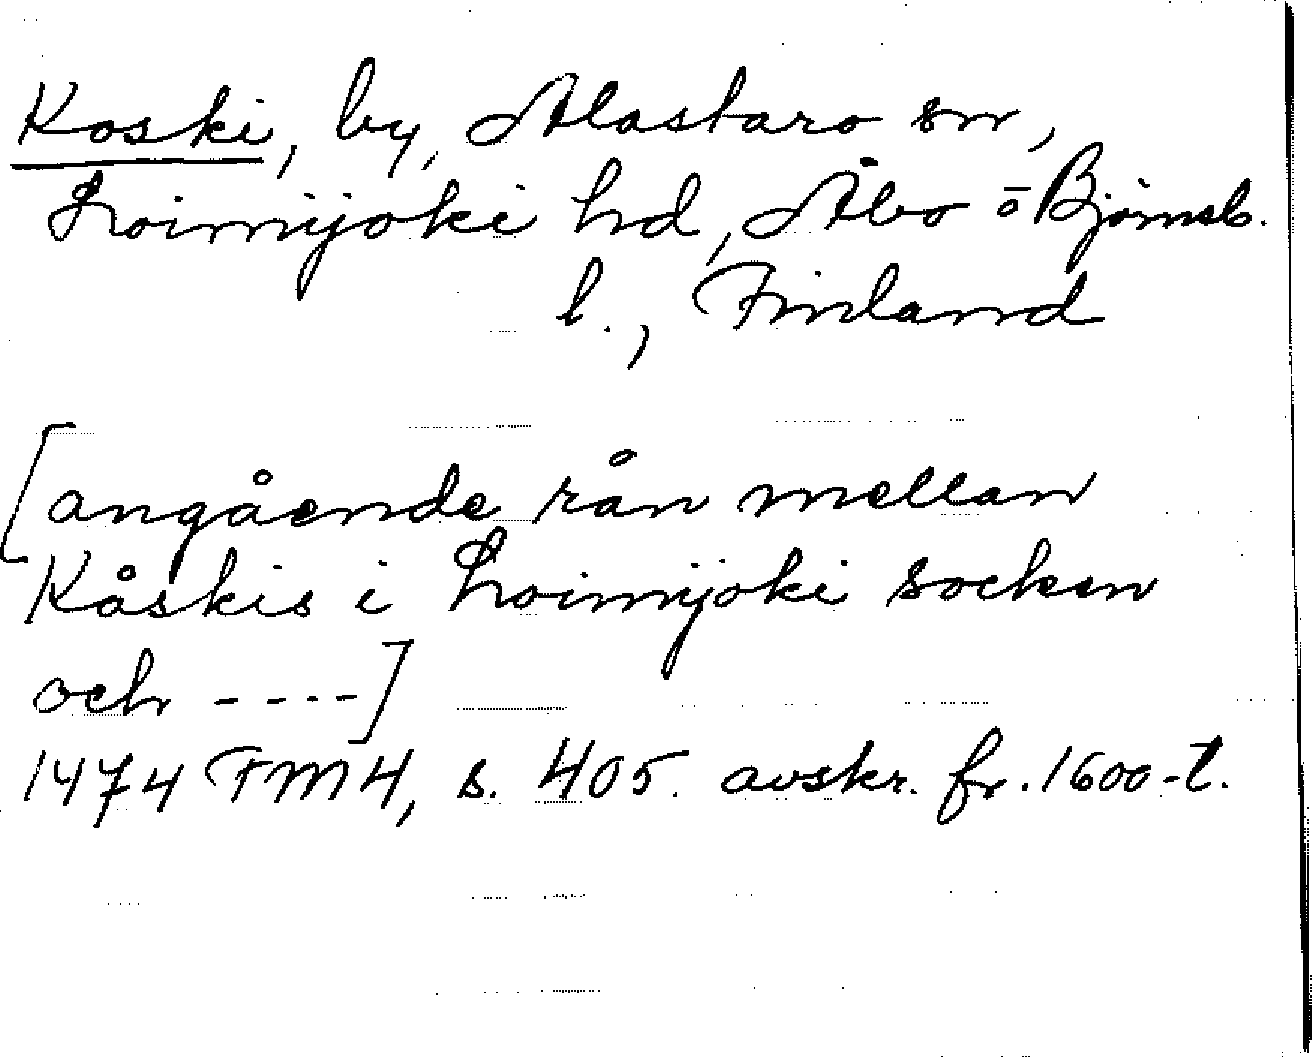 Koski, by, Alastaro sn,
Loimijoki hd, Åbo o Björneb.
l., Finland
[angående rån mellan
Kåskis i Loimijoki socken
och ----]
1474 FMH, s. 405. avskr. fr. 1600-t.